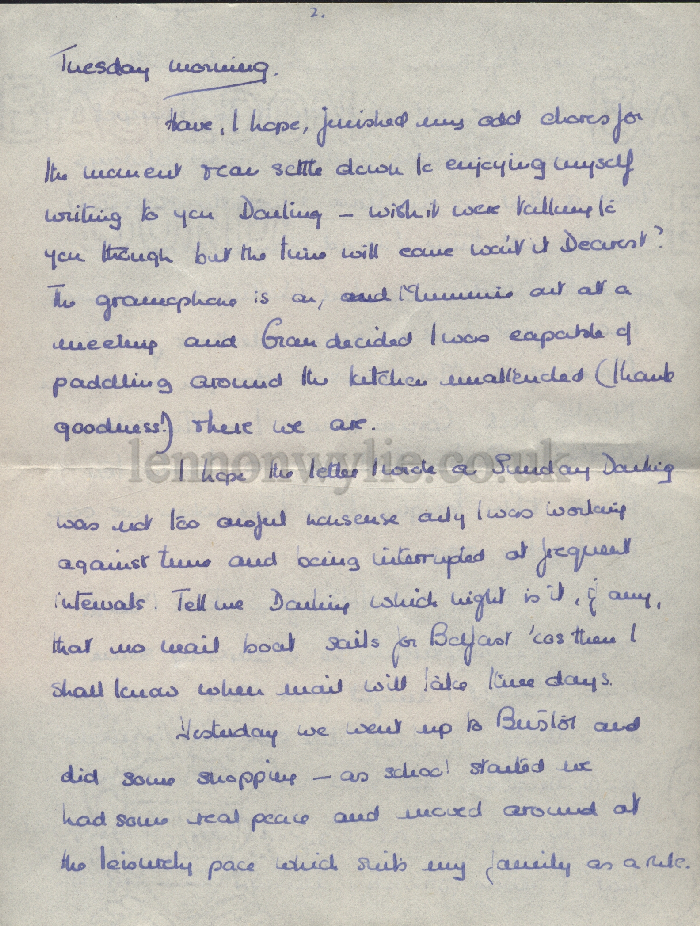 2.
Tuesday morning.
Have, I hope, finished my odd chores for
the moment & can settle down to enjoying myself
writing to you Darling – wish it were talking to
you though but the time will come won't it Dearest?
The gramophone is on, and Mummie out at a
meeting and Gran decided I was capable of
paddling around the kitchen unattended (thank
goodness!) & here we are.
lennonwylie.co.uk
I hope the letter I wrote on Sunday Darling
was not too awful nonsense only I was working
against time and being interrupted at frequent
intervals. Tell me Darling which night is it, if any,
that no mail boat sails for Belfast 'cos then I
shall know when mail will take three days.
Yesterday we went up to Bristol and
did some shopping – as school started we
had some real peace and moved around at
the leisurely pace which suits my family as a rule.